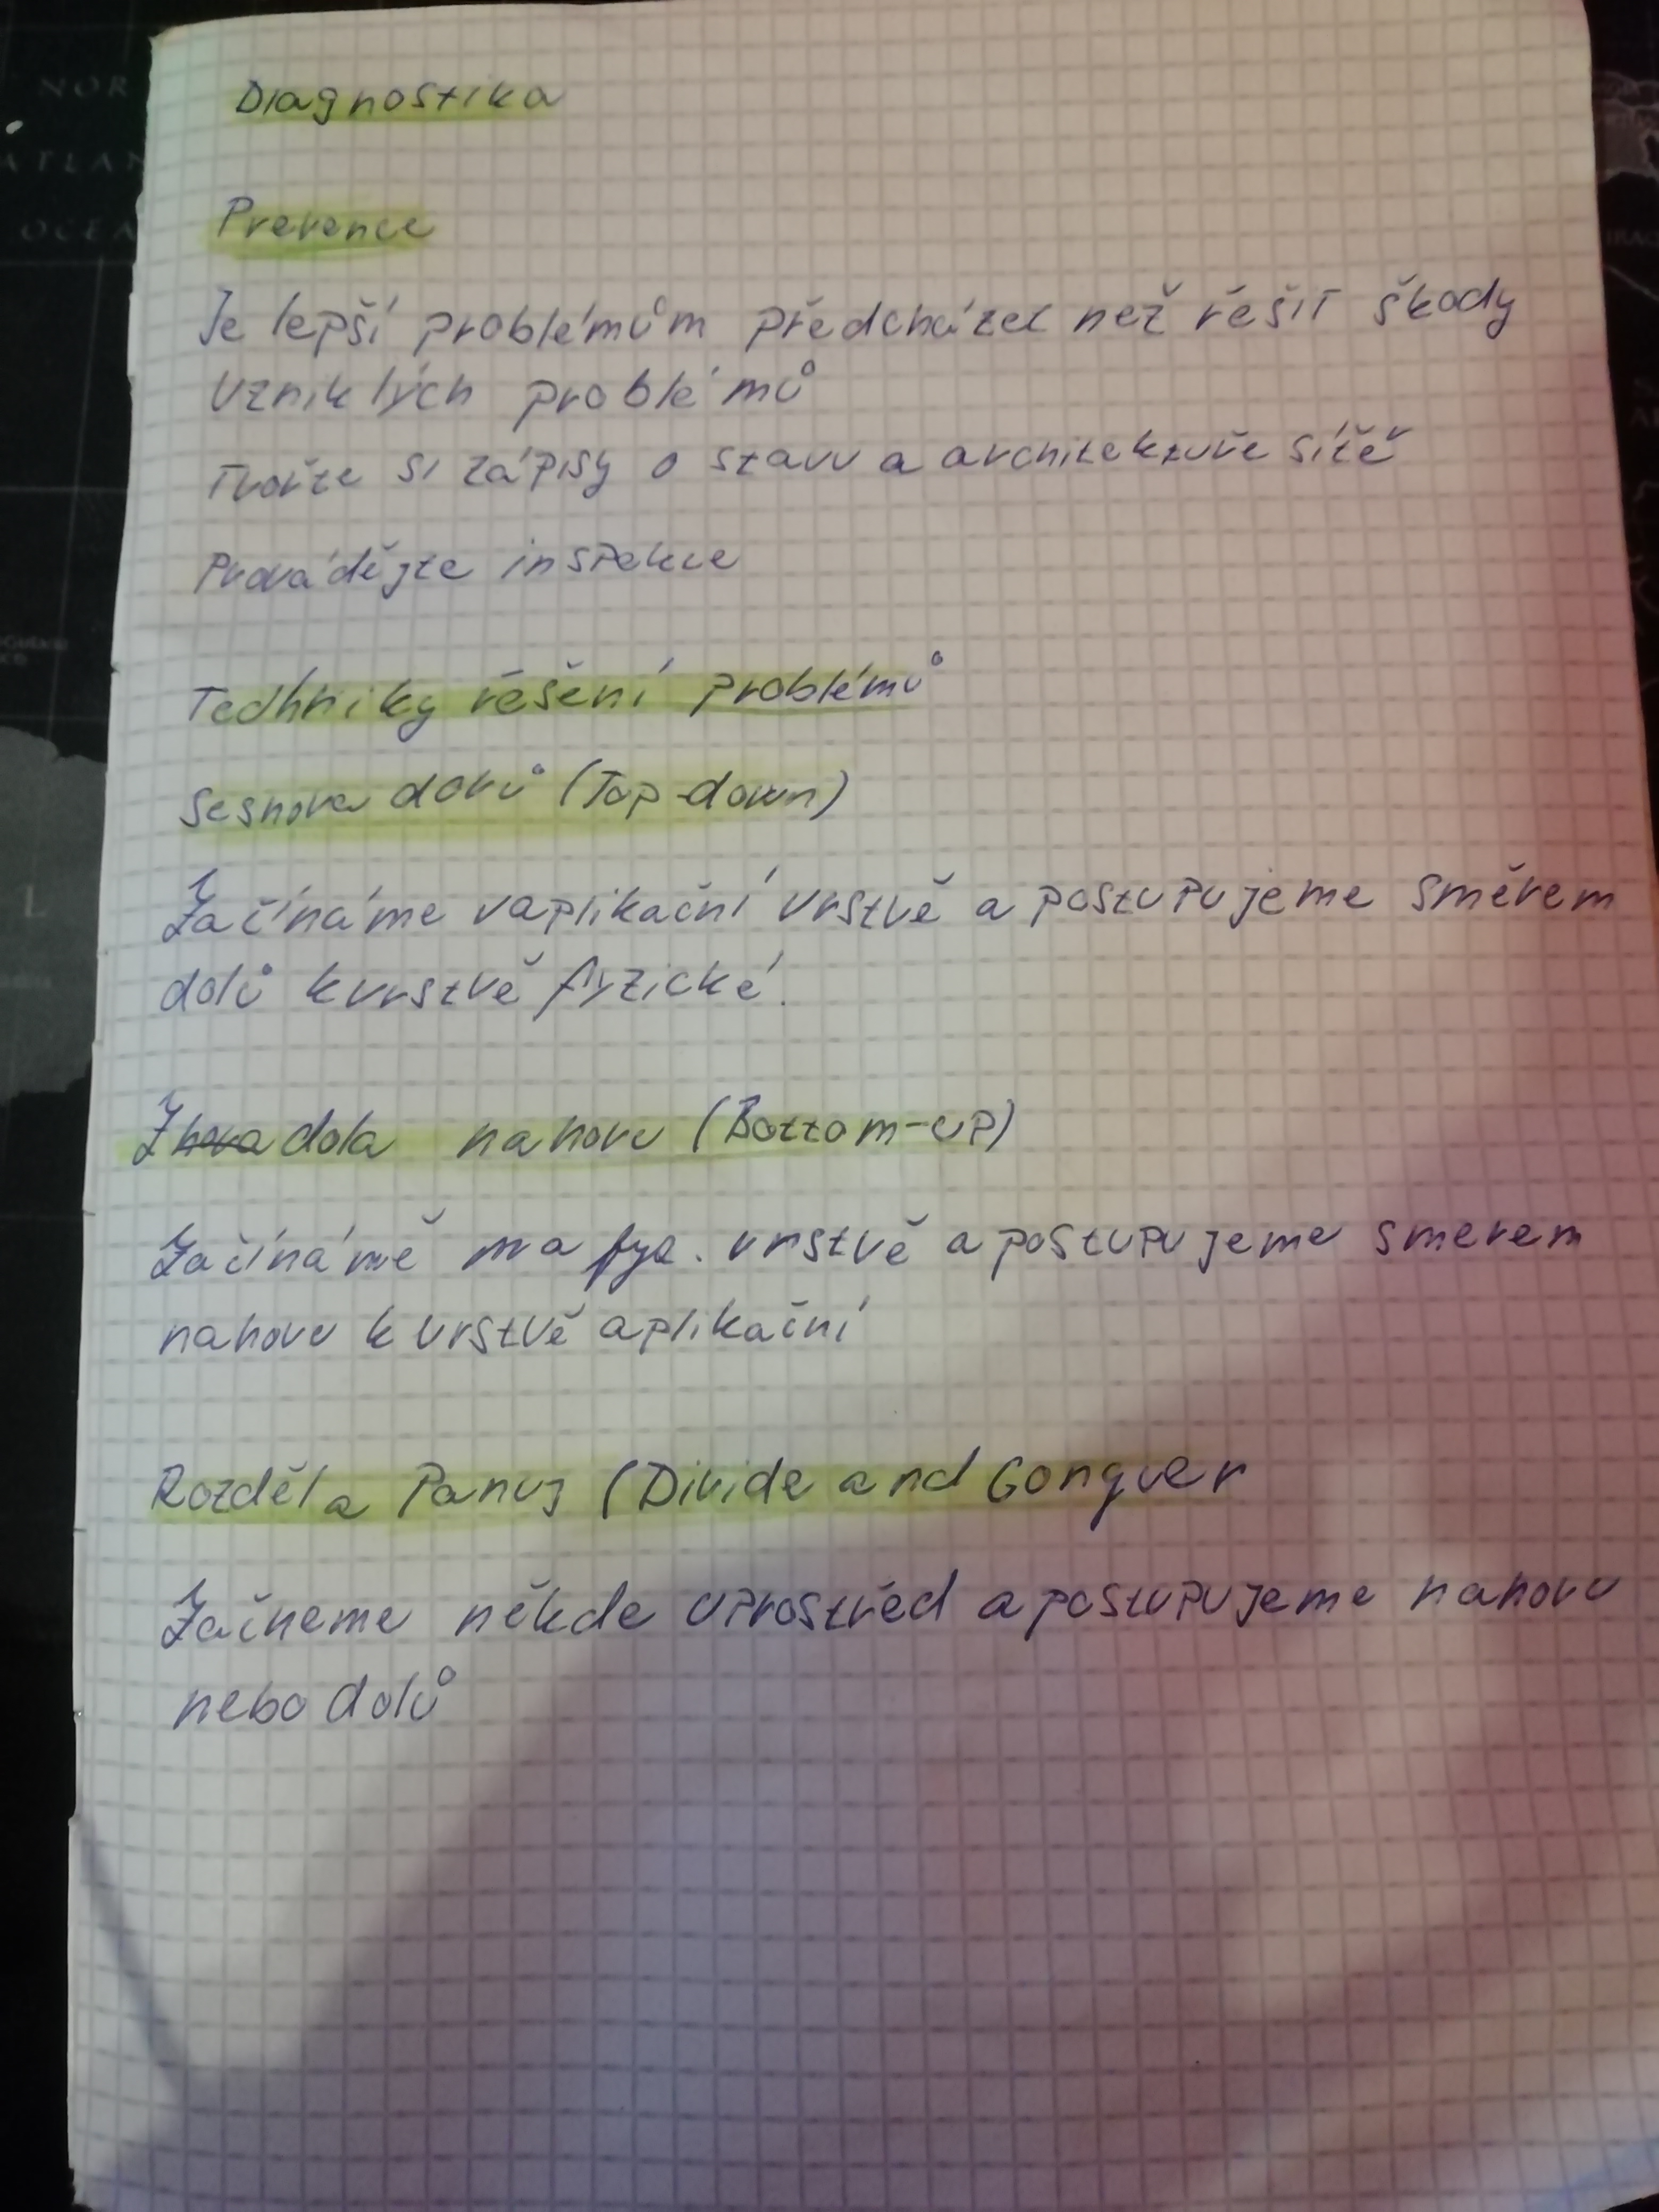 Diagnostika
Prevence
Je lepší problémům předcházet než řěšit škody
vzniklých problémů
Tvořte si zápisy o stavu a architektuře sítě
Provádějte inspekce
Techniky řěšení problémů
Sesnora dolů (Top-down)
Začínáme vaplikační vrstvě a postupujeme směrem
dolů kvrstvě fyzické.
Zhora dola nahoru (Bottom-up)
Začínámě na fyz. vrstvě a postupujeme smerem
nahoru k vrstvě aplikační
Rozděl a Panuj (Divide and Conquer
Začneme někde uprostřed a postupujeme nahoru
nebo dolů